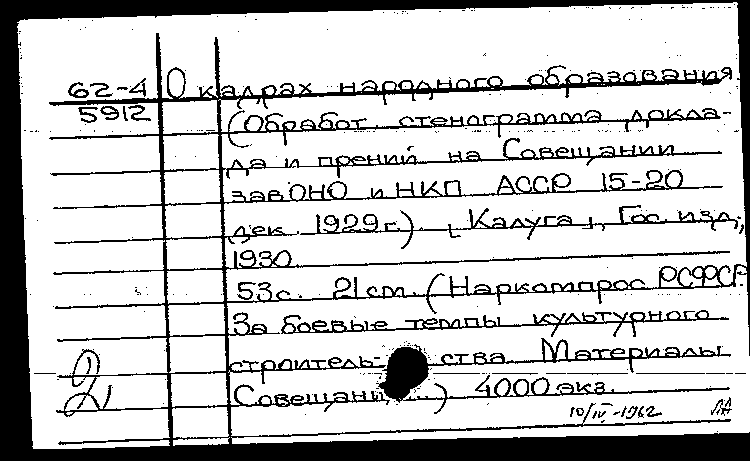 62-4
5912
О кадрах народного образования
(Обработ. стенограмма докла-
да и прений на Совещании
зав. ОНО и НКП АССР 15-20
дек. 1929 г.). [Калуга], Гос. изд.,
1930.
53с. 21 cm. (Наркомпрос РСФСР.
За боевые темпы культурного
строитель- ства. Материалы
Совещани ...) 4000 экз.
2
10/IV-1962 ЛА